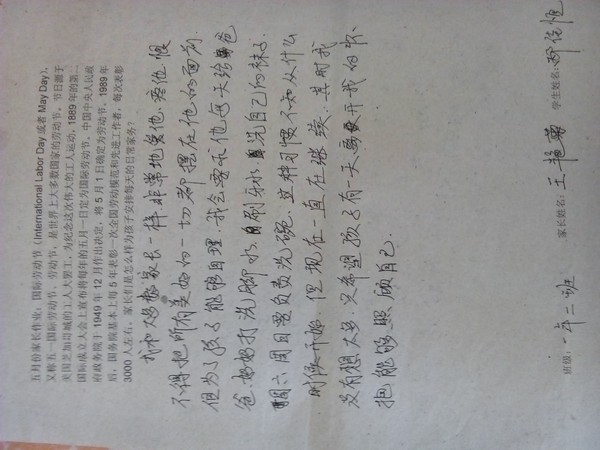 五月份家长作业：国际劳动节（International Labor Day 或者 May Day），
又称五一国际劳动节、劳动节，是世界上大多数国家的劳动节。节日源于
美国芝加哥城的工人大罢工，为纪念这次伟大的工人运动，1889年的第二
国际成立大会上宣布将每年的五月一日定为国际劳动节。中国中央人民政
府政务院于1949年12月作出决定，将5月1日确定为劳动节。1989年
后，国务院基本上每5年表彰一次全国劳动模范和先进工作者，每次表彰
3000人左右。家长们是怎么样为孩子安排每天的日常家务？
我和大多数家长一样非常地爱他、疼他恨
不得把所有美好的一切都摆在他的面前.
但为了孩子能够自理.我会要求他每天给爸
爸妈妈打洗脚水.自刷牙.洗自己的袜子.
周六周日要负责洗碗.这种习惯不知从什么
时候开始.但现在一直在继续.其时我
没有想太多.只希望孩子有一天离开我的怀
抱能够照顾自己.
班级：一年二班 家长姓名：王艳菊 学生姓名：